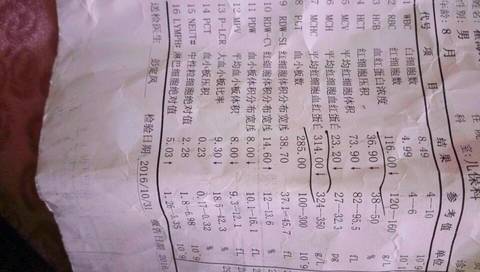 男 科 室:儿保科
年龄: 8 月
代号 项 目 结 果 参 考 值 单位
1 WBC 白细胞数 8.49 4—10 10^9
红细胞数 4.99 4—6
3 HGB 血红蛋白浓度 116.00↓ 120—160 g/L
红细胞压积 36.90↓ 38—50 %
5 MCV 平均红细胞体积 73.90↓ 82—95.5 fL
6 MCH 平均红细胞血红蛋白 23.20↓ 27—32.3 pg
7 MCHC 平均红细胞血红蛋白 314.00↓ 324—350 g/L
8 PLT 血小板数 285.00 100—300 10^9
9 RDW-SD 红细胞体积分布宽度 38.70 37.1—45.7 fL
10 RDW-CV 红细胞体积分布宽度 14.60↑ 12—13.6 %
11 PDW 血小板体积分布宽度 8.00↓ 10.1—16.1 fL
12 MPV 平均血小板体积 8.00↓ 9.3—12.1 fL
13 P-LCR 大血小板比率 9.30↓ 18.5—42.3 %
14 PCT 血小板压积 0.23 0.17—0.32 %
15 NEUT# 中性粒细胞绝对值 2.28 1.8—6.98 10^9
16 LYMPH# 淋巴细胞绝对值 5.03↑ 1.26—3.35 10^9
送检医生 检验日期:2016/10/31 报告日期:2016